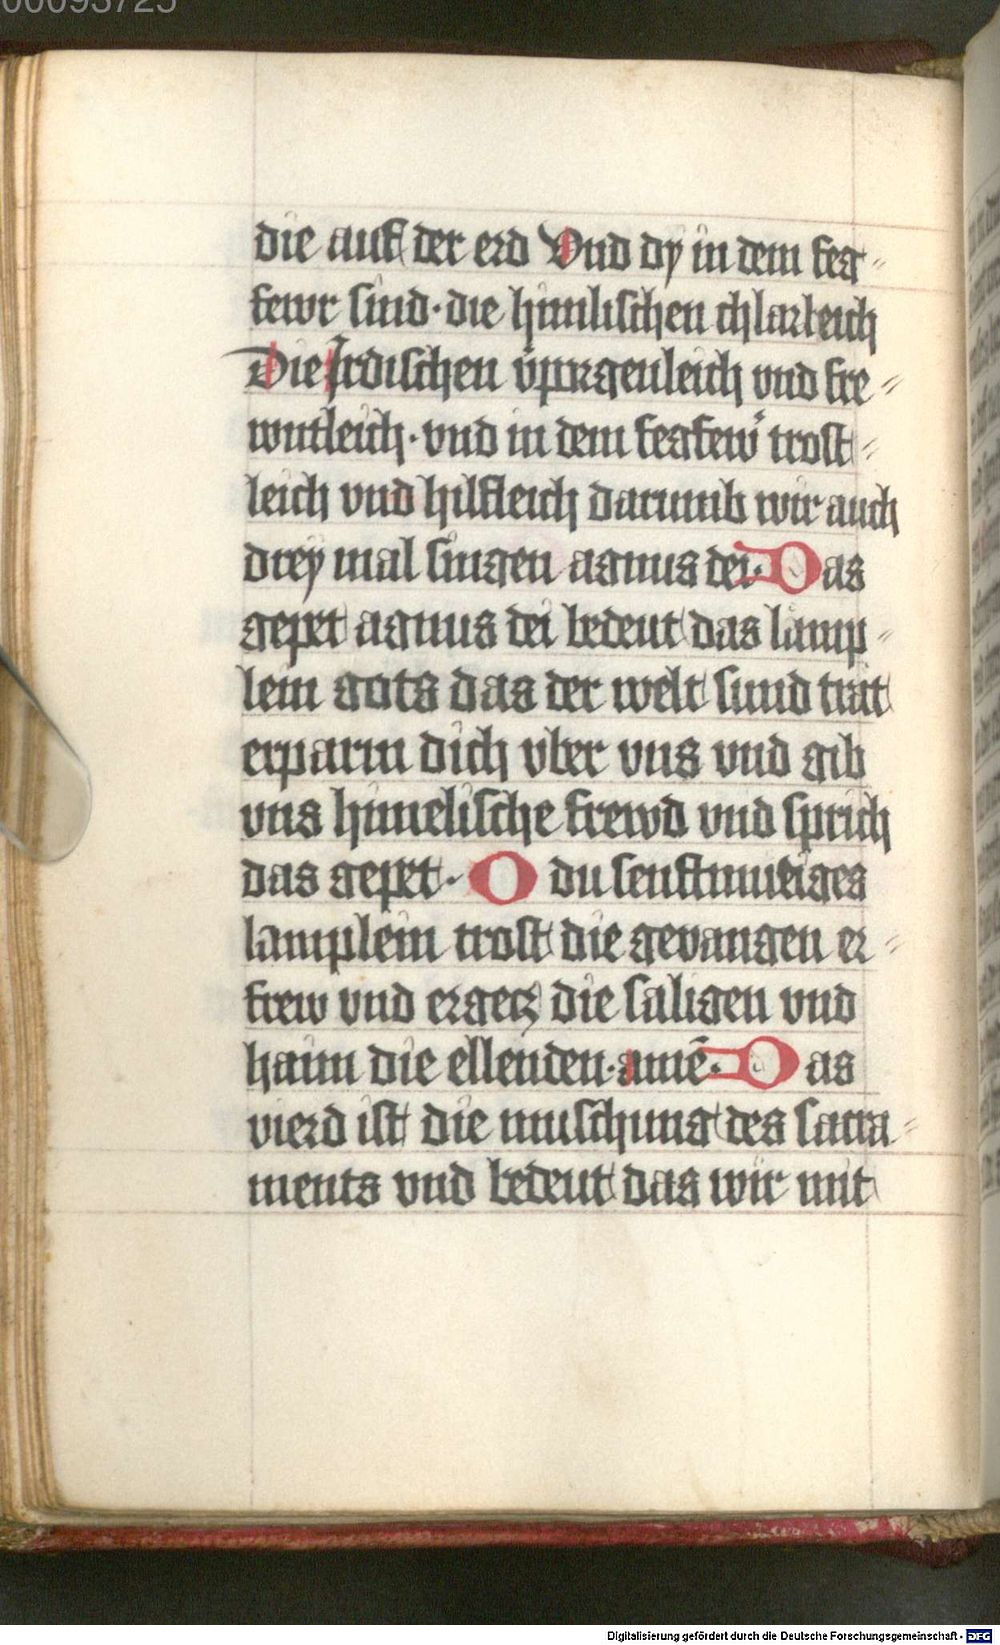 00093725
die auf der erd Vnd dÿ in dem feg⸗
fewr sind · die himlischen chlarleich
Die Irdischen vnd fre⸗
wntleich · vnd in dem fegfewr trost⸗
leich vnd hilfleich darumb wir auch
dreÿ mal singen agnus dei · Das
gepet agnus dei bedeut das lamp⸗
lem gots das der welt sund trät
erparm dich vber vns vnd gib
vns himelische frewd vnd sprich
das gepet · O du senftmutiges
lamplein trost die gevangen er⸗
frew vnd ergecz die saligen vnd
haim die ellenden · amē · Das
vierd ist die muschung des sacra⸗
ments vnd bedeut das wir mit
Digitalisierung gefördert durch die Deutsche Forschungsgemeinschaft - DFG